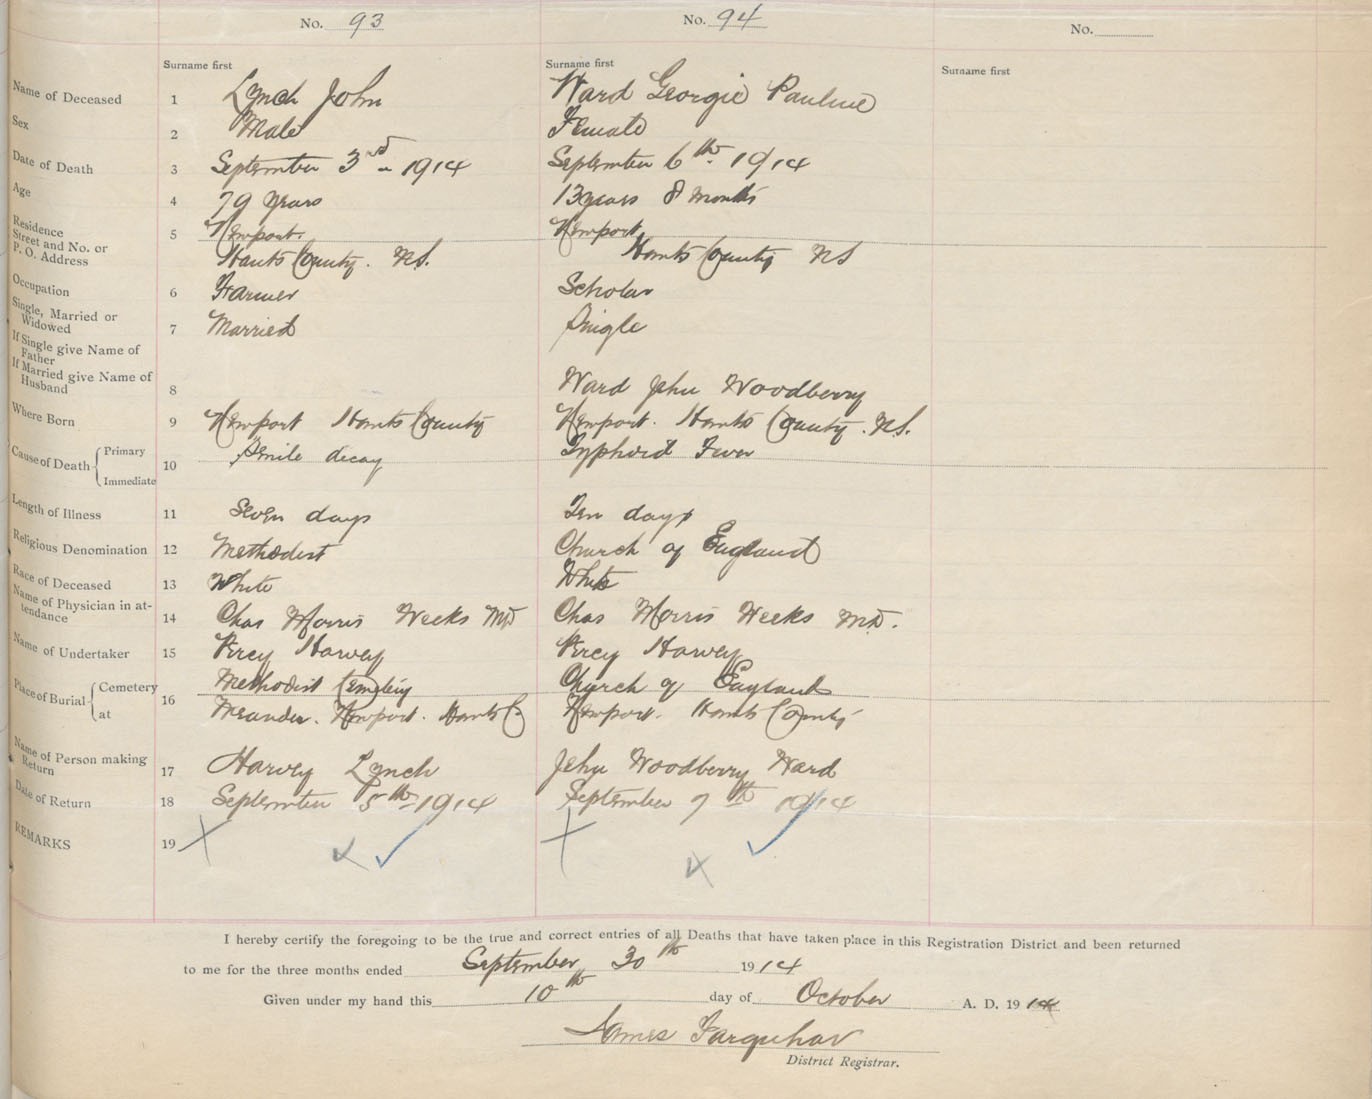 No. 93 No. 94 No.
Surname first Surname first Surname first
Name of Deceased 1 Lynch John Ward Georgie Pauline
Sex 2 Male Female
Date of Death 3 September 3rd - 1914 September 6th - 1914
Age 4 79 years 13 years 8 months
Residence
Street and No. or
P. O. Address 5 Newport. Newport
Hants County. N.S. Hants County NS
Occupation 6 Farmer Scholar
Single, Married or
Widowed 7 Married Single
If Single give Name of
Father
If Married give Name of
Husband 8 Ward John Woodberry
Where Born 9 Newport Hants County Newport. Hants County. N.S.
Cause of Death { Primary
Immediate 10 Senile decay Typhoid Fever
Length of Illness 11 Seven days Ten days
Religious Denomination 12 Methodist Church of England
Race of Deceased 13 White White
Name of Physician in at-
tendance 14 Chas Morris Weeks MD Chas Morris Weeks MD.
Name of Undertaker 15 Percy Harvey Percy Harvey
Place of Burial { Cemetery
at 16 Methodist Cemetery Church of England
Meander. Newport. Hants Co Newport. Hants County
Name of Person making
Return 17 Harvey Lynch John Woodberry Ward
Date of Return 18 September 5th - 1914 September 7th 1914
REMARKS 19
I hereby certify the foregoing to be the true and correct entries of all Deaths that have taken place in this Registration District and been returned
to me for the three months ended September 30th 1914
Given under my hand this 10th day of October A. D. 1914
James Farquhar
District Registrar.